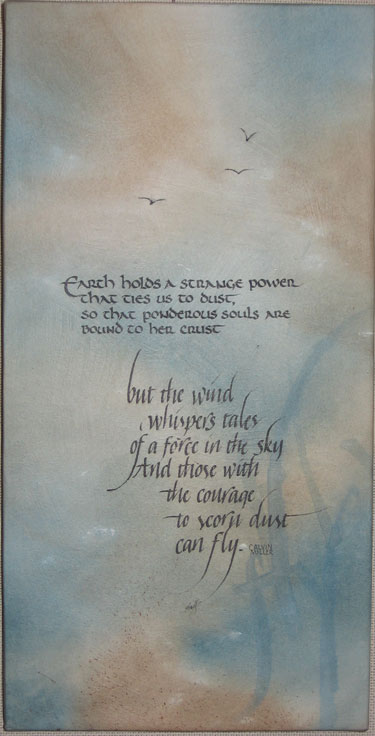 Earth holds a strange power
that ties us to dust,
so that ponderous souls are
bound to her crust
but the wind
whispers tales
of a force in the sky
And those with
the courage
to scorn dust
can fly.